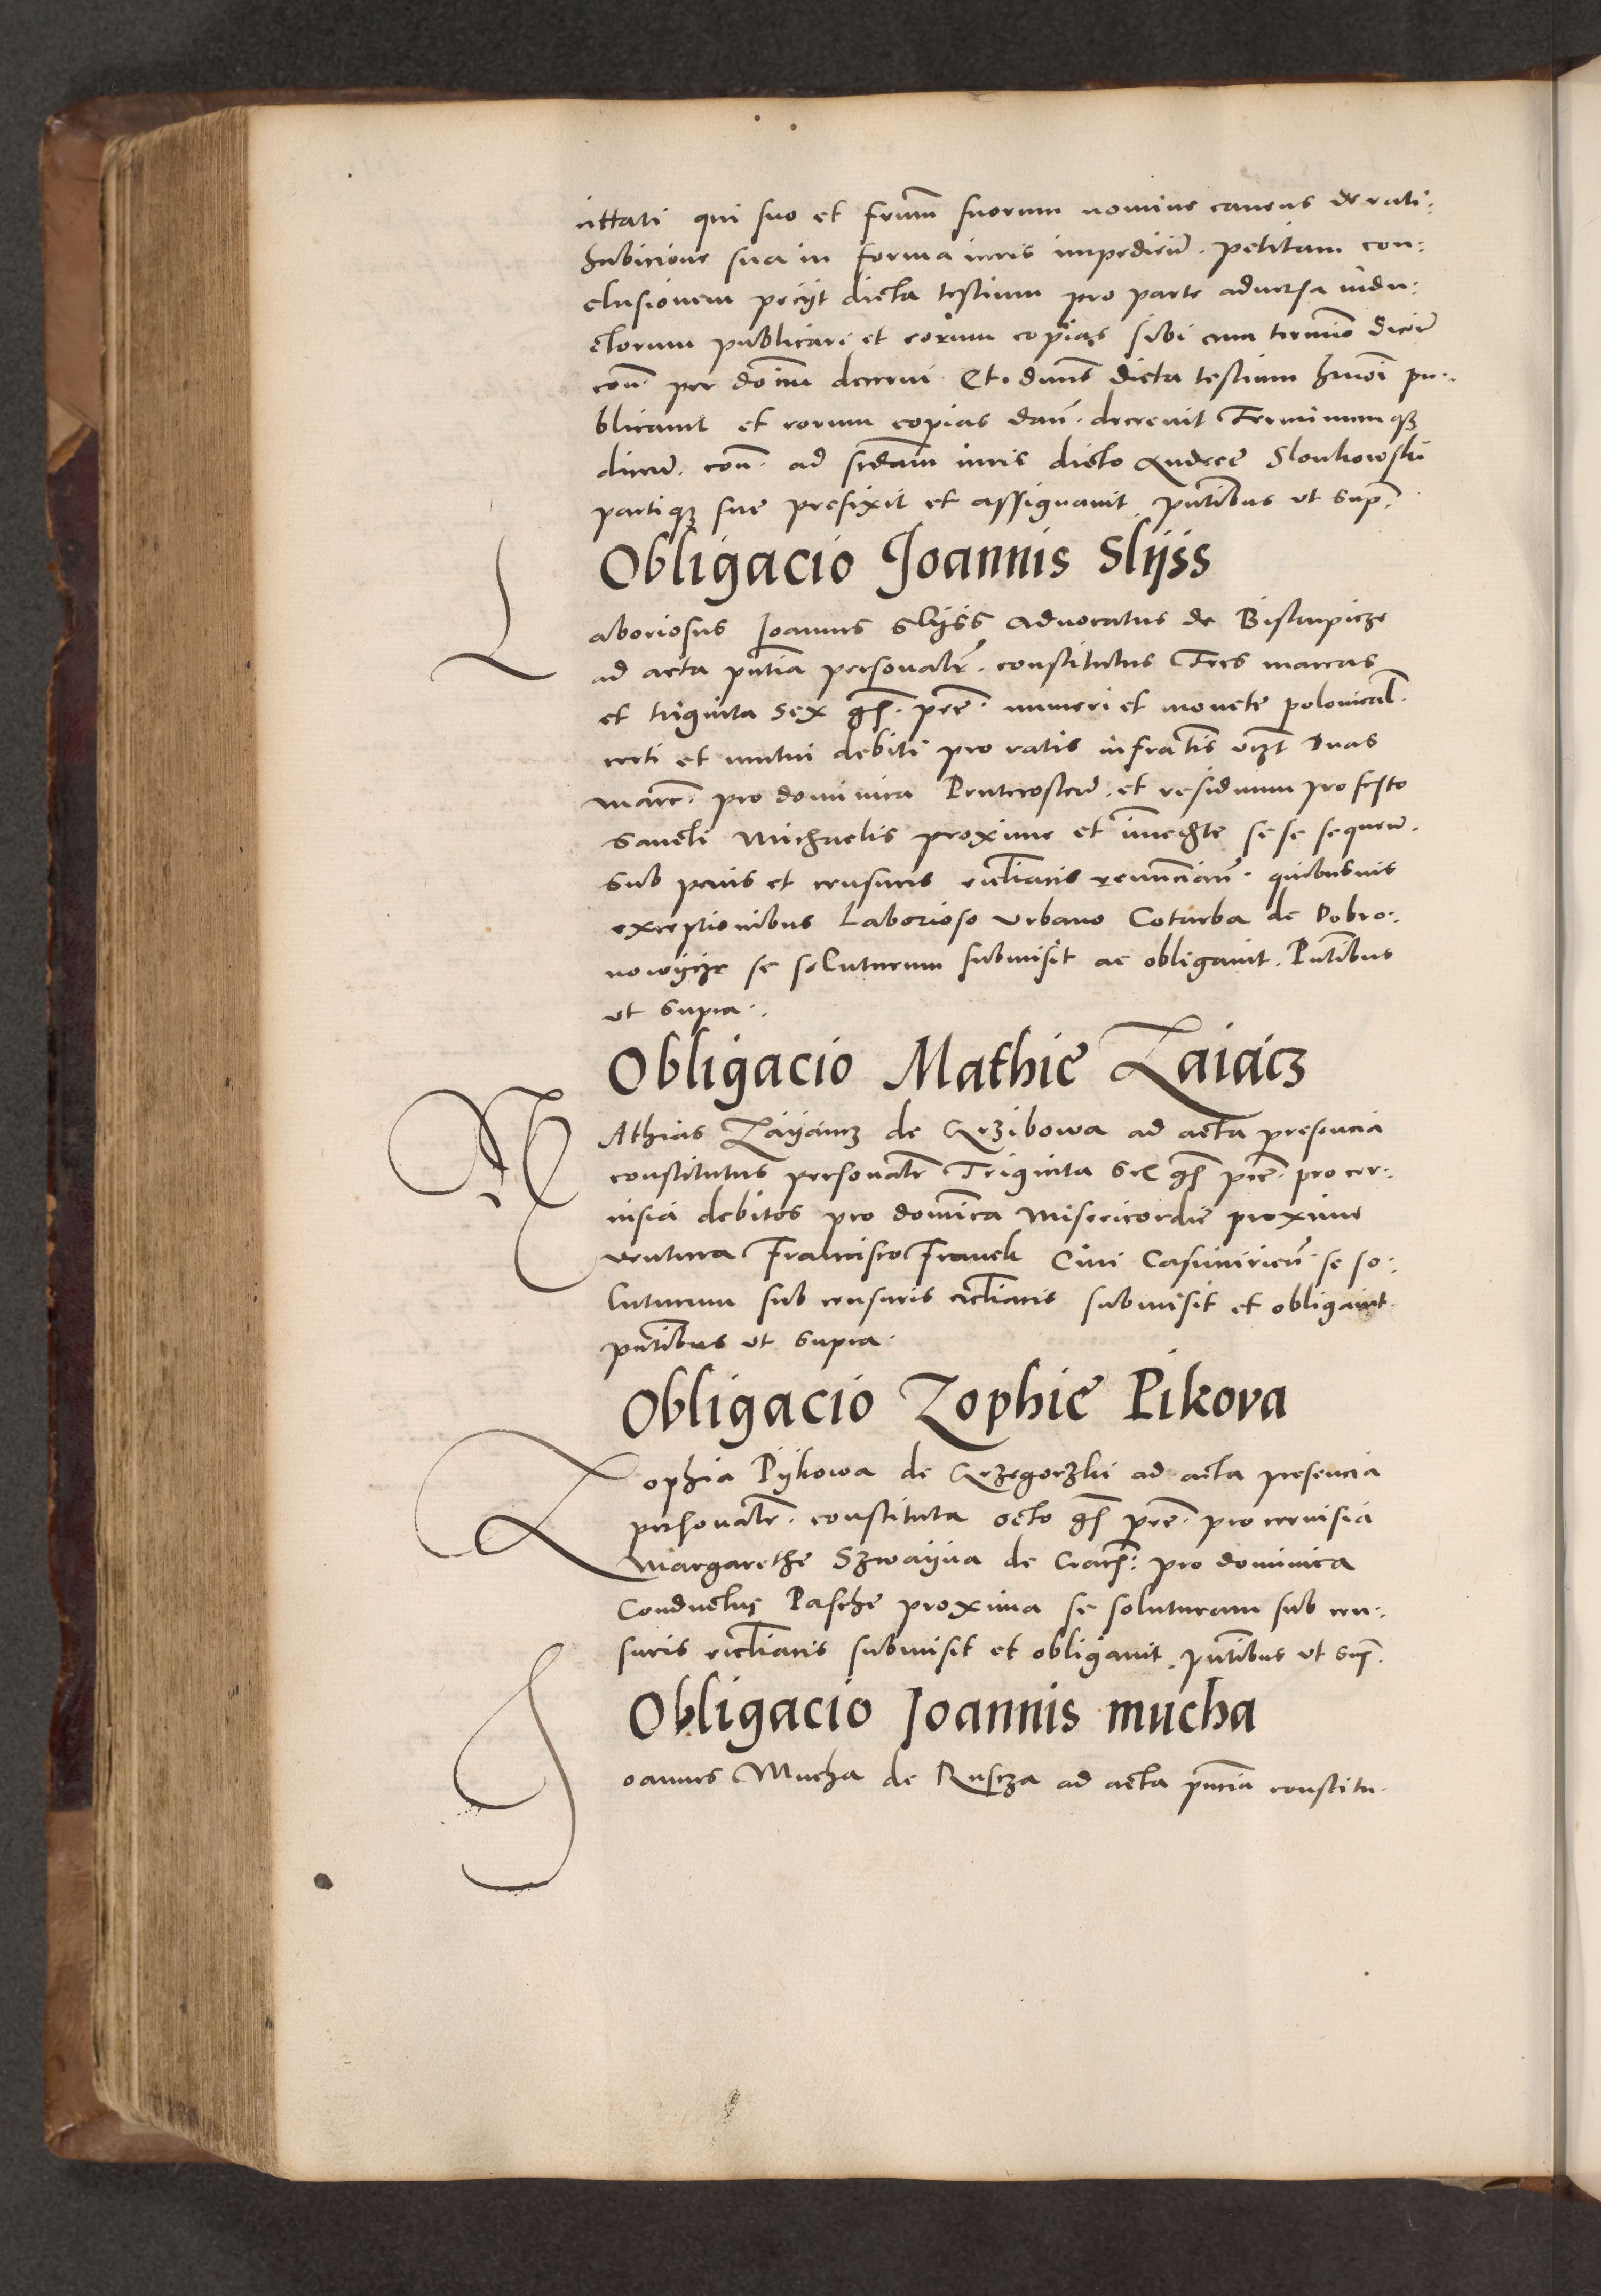 ittati qui suo et frum̄ suorum nomine cavens de rati:
habicione sua in forma iuris impedien̄. petitam con:
clusionem peciit dicta testium pro parte adversa indu:
ctorum publicari et eorum copias sibi cum termino dicen̄
con̄. per domin̄ decerni. Et d. dn̄us dicta testium hm̄oi pu:
blicavit et eorum copias dan̄. decrevit Terminumqȝ
dicen̄. con̄. ad sc̄dam iuris dicto Andree Slonkowski
partiqȝ sue prefixit et assignavit. pn̄tibus ut sup̄.
Obligacio Joannis Slijss
Laboriosus Joannes Slijss advocatus de Biskupicze
ad acta pn̄tia personalr̄. constitutus Tres marcas
et triginta sex gr̄. pec̄. numeri et monete polonical̄.
certi et mutui debiti pro ratis infrāctis viȝt Duas
marc̄. pro dominica Penthecosten̄. et residuum pro festo
Sancti Michaelis proxime et īmedͣte se se sequen̄.
sub penis et censuris eccl̄iacis renuncian̄. quibusvis
exceptionibus Laborioso Urbano Coturba de Dobro:
nowijcze se soluturum submisit ac obligavit. Pn̄tibus
ut supra.
Obligacio Mathie Zaiącz
MAthias Zaijancz de Grzibowa ad acta presencia
constitutus personalr̄ Triginta sex gr̄ pec̄. pro cer:
visia debitos pro dominica Misericordie proxime
ventura Francisco Franek Civi Casimirien̄. se so:
luturum sub censuris eccl̄iacis submisit et obligavit.
pn̄tibus ut supra.
Obligacio Zophie Pikova
Zophia Pijkowa de Grzegorzki ad acta presencia
personalr̄. constituta octo gr̄ pec̄. pro cervisia
Margarethe Szwaijna de Crac̄: pro dominica
Conductus Pasche proxima se soluturam sub cen:
suris eccl̄iacis submisit et obligavit. pn̄tibus ut sup̄.
Obligacio Joannis mucha
Joannes Mucha de Ruscza ad acta pn̄cia constitu.